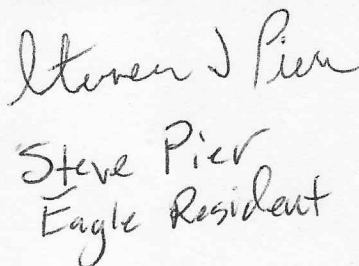 Steven J Pier
Steve Pier
Eagle Resident